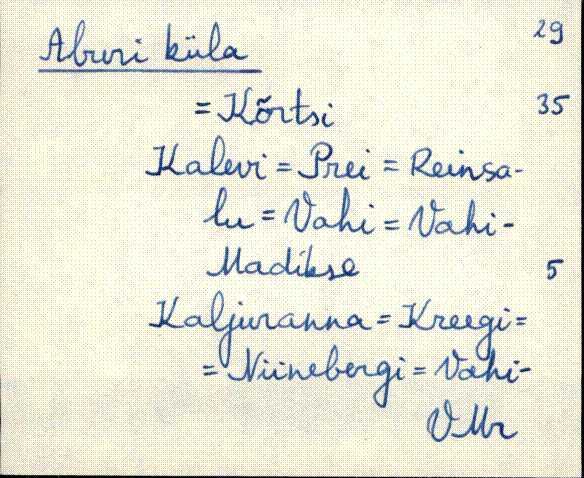 Aburi küla 29
= Kõrtsi 35
Kalevi = Prei = Reinsa-
lu = Vahi = Vahi-
Madikse 5
Kaljuranna = Kreegi =
= Niinebergi = Vahi-
VMr